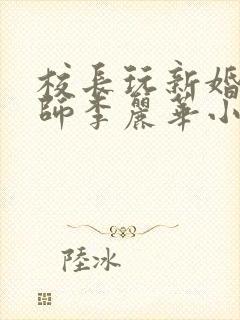 校長玩新婚
師李麗華小
陸冰